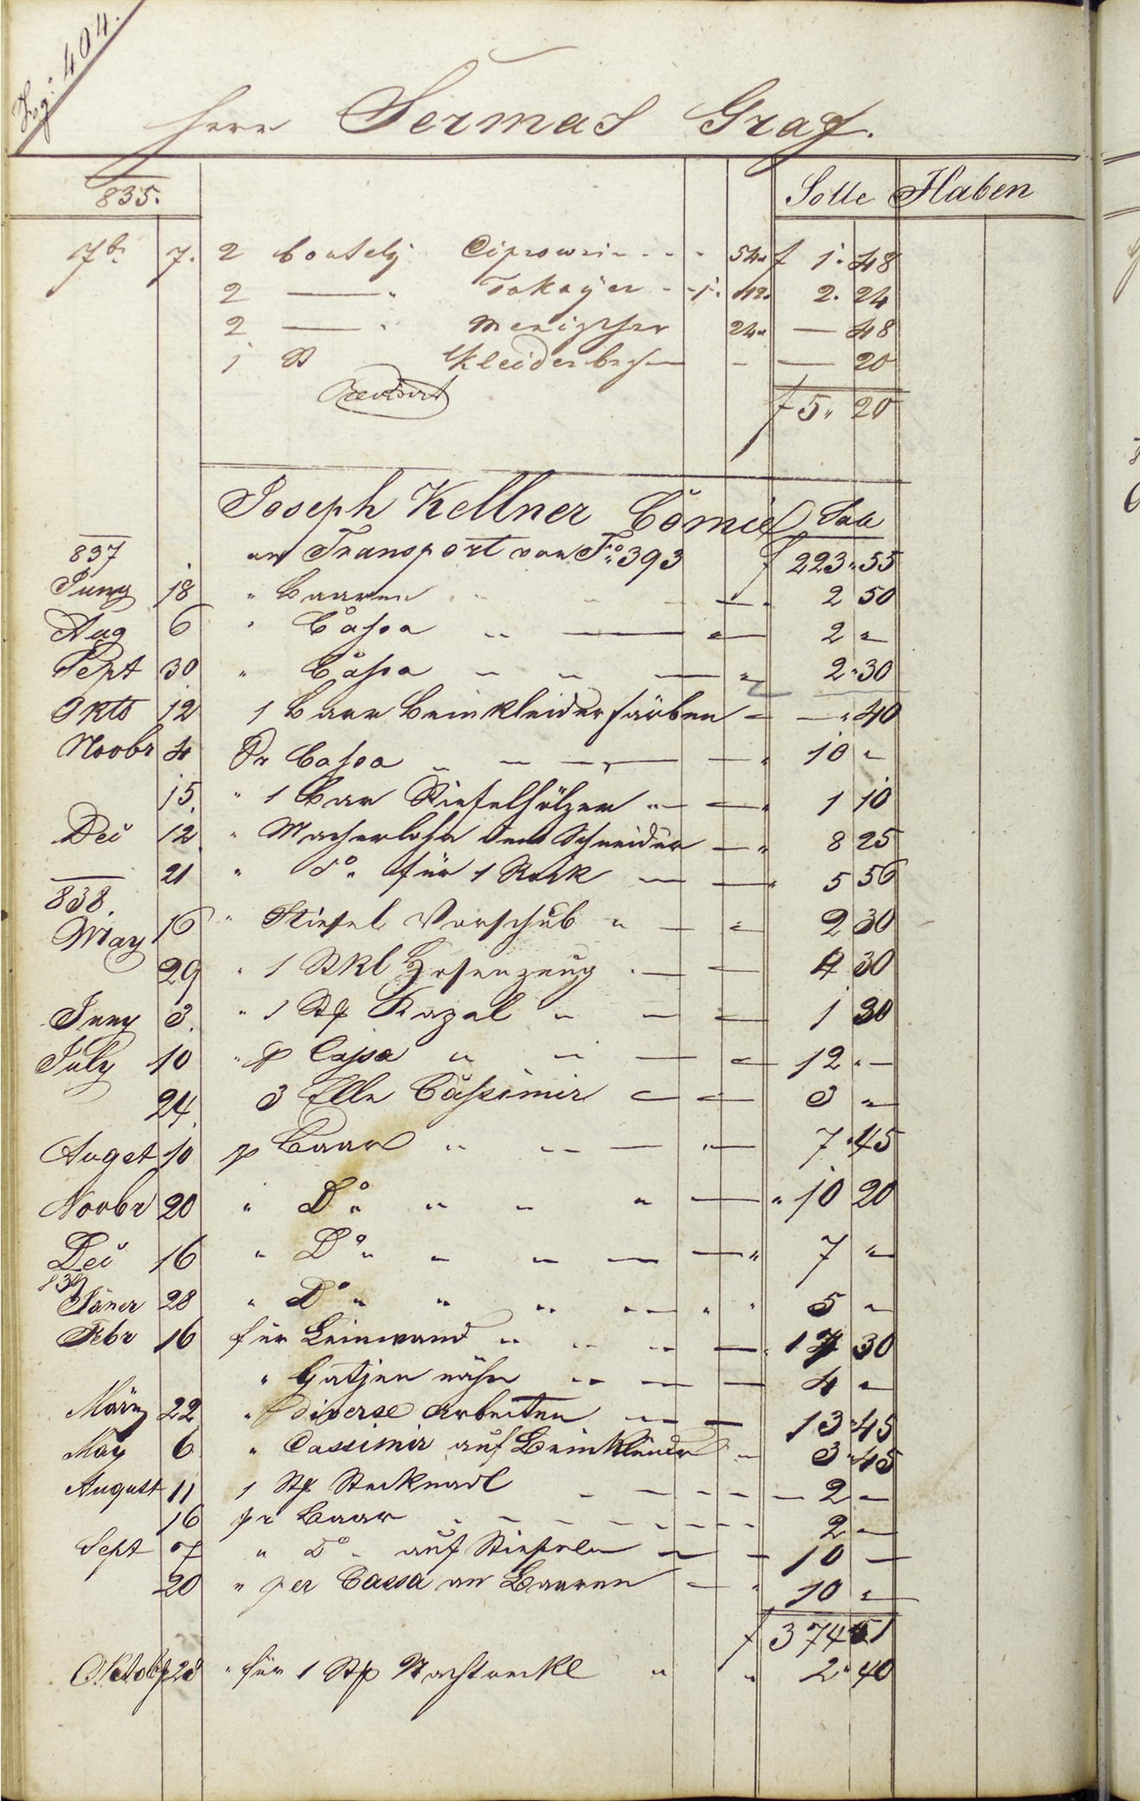 404.
Herr Sermas Graf.
835.
Solle Haben
7br 7. 2 boutely Ciprowein 54 f 1. 48
2 — Tokayer 1. 12. 2. 24
2 — 24 — 48
1 Kleiderb — 20
f 5. 20
Joseph Kellner Comie Solle
837 an Transport von Fo 393 f 223. 55
Juny 18 " baaren 2 50
Aug 6 " Cassa 2 "
Sept 30 " Cassa 2. 30
Okto 12 1 baar Beinkleider färben — 40
Novbr 4 Pr Cassa 10 "
15. " 1 Paar Stiefelhölzer 1 10
Dec 12. " Macherlohn dem Schneider 8 25
21 " do für 1 Rock 5 56
838.
May 16 " Stiefel Vorschub 2 30
29 " 1 Stkl Hosenzeug 4 30
Juny 3. " 1 Stk 1 30
July 10 " p Cassa 12 " —
24. 3 Elle Cassimir 3 "
Augst 10 p Baar 7. 45
Novbr 20 " Do 10 20
Dec 16 " Do 7 "
839
Jäner 28 " Do 5 "
Febr 16 für Leinwand 17 30
" Gatjen nähn 4 "
März 22 " diverse Arbeiten 13. 45
May 6 " Cassimir auf Beinkleider 3. 45
August 11 1 Stk Stecknadl 2 —
16 pr Baar 2 —
Sept 7 " Do auf Stiefeln 10 —
20 " per Cassa an Baaren 10 "
f 374 51
Octob 28 " für 1 Stk 2. 40